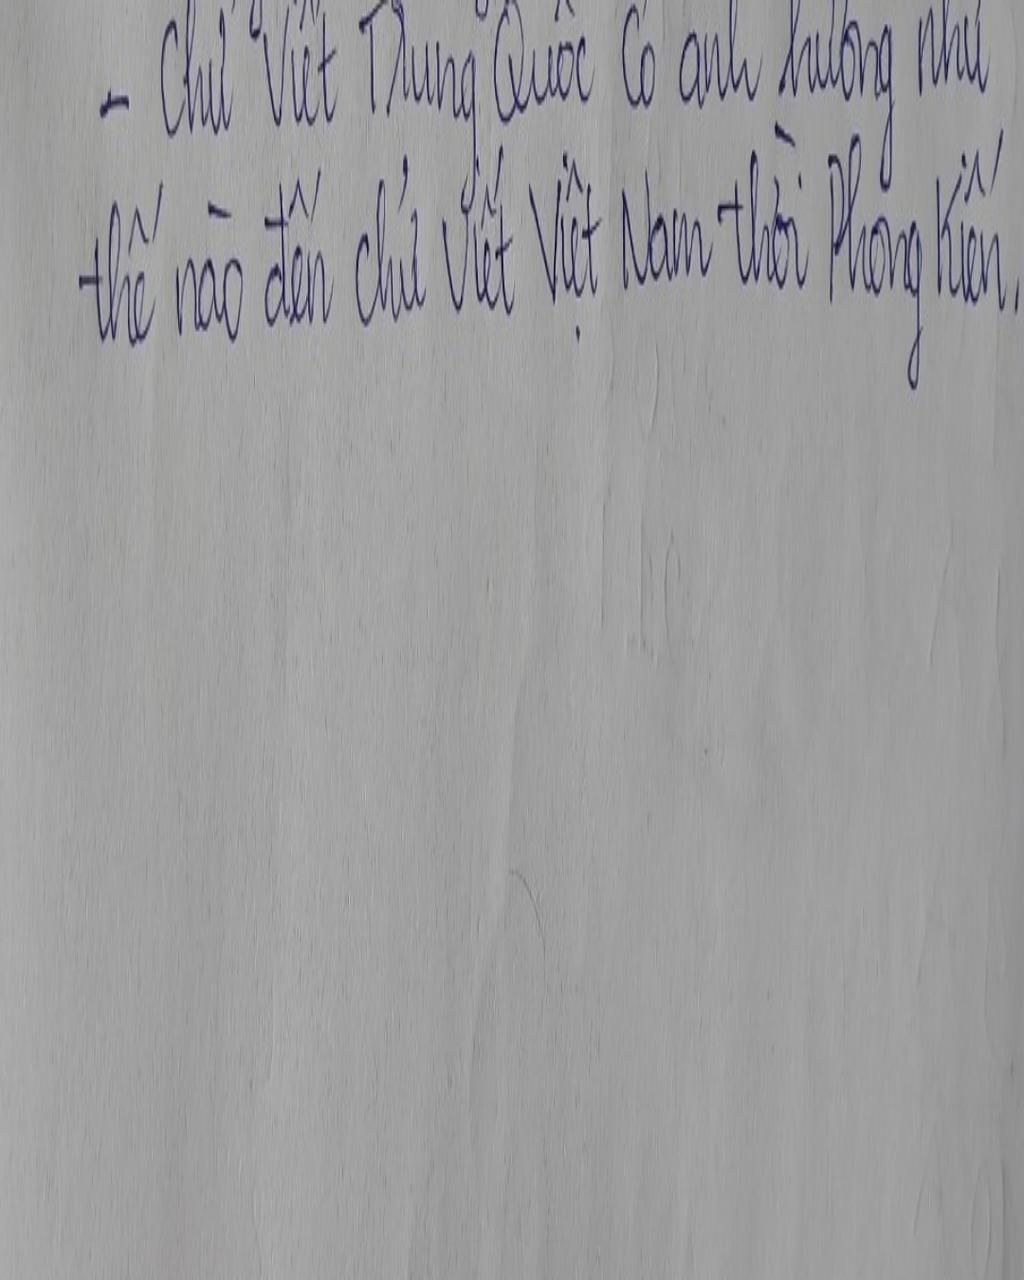 - Chữ Viết Trung Quốc có ảnh hưởng như
thế nào đến chữ Viết Việt Nam thời Phong Kiến.